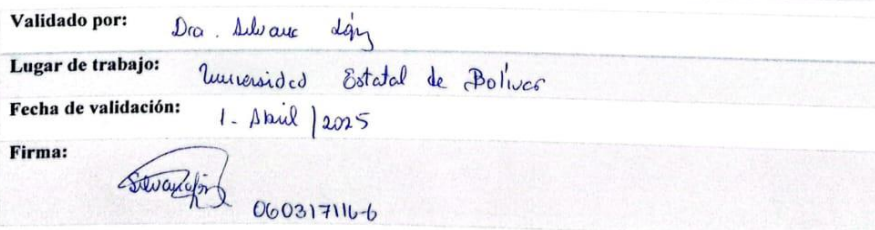 Validado por: Dra. Silvana López
Lugar de trabajo: Universidad Estatal de Bolívar
Fecha de validación: 1 - Abril / 2025
Firma:
Silvana López
060317116-6